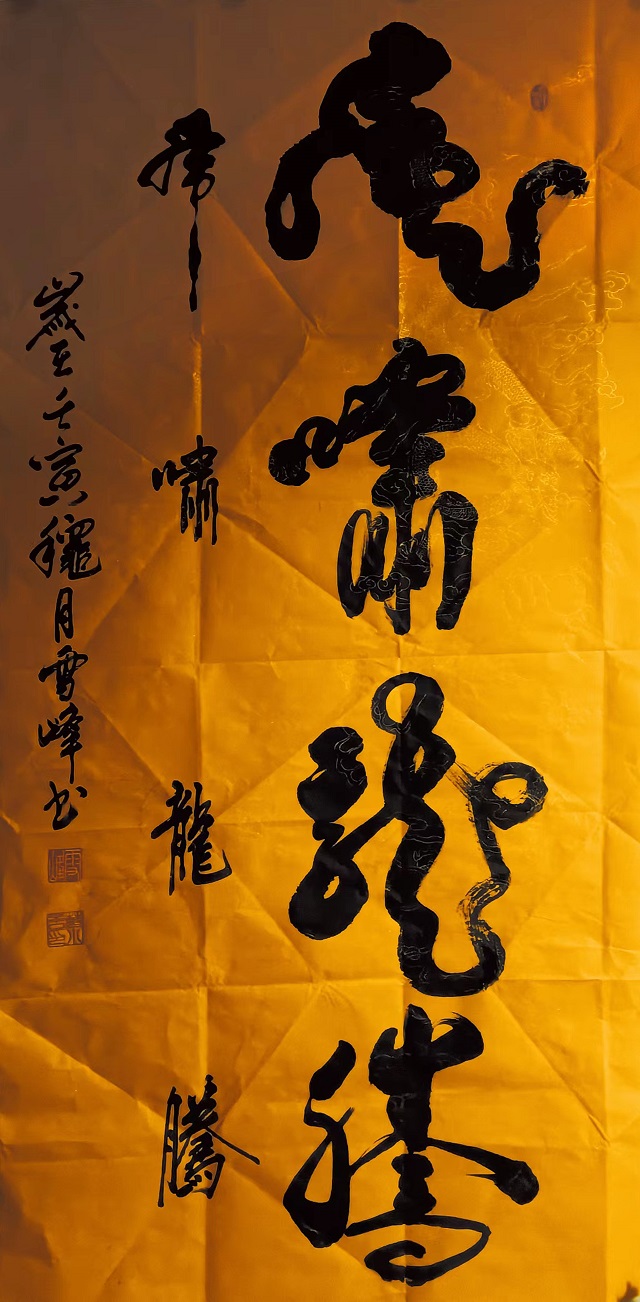 虎嘯龍騰
虎嘯龍騰
歲在壬寅穐月雪峰书